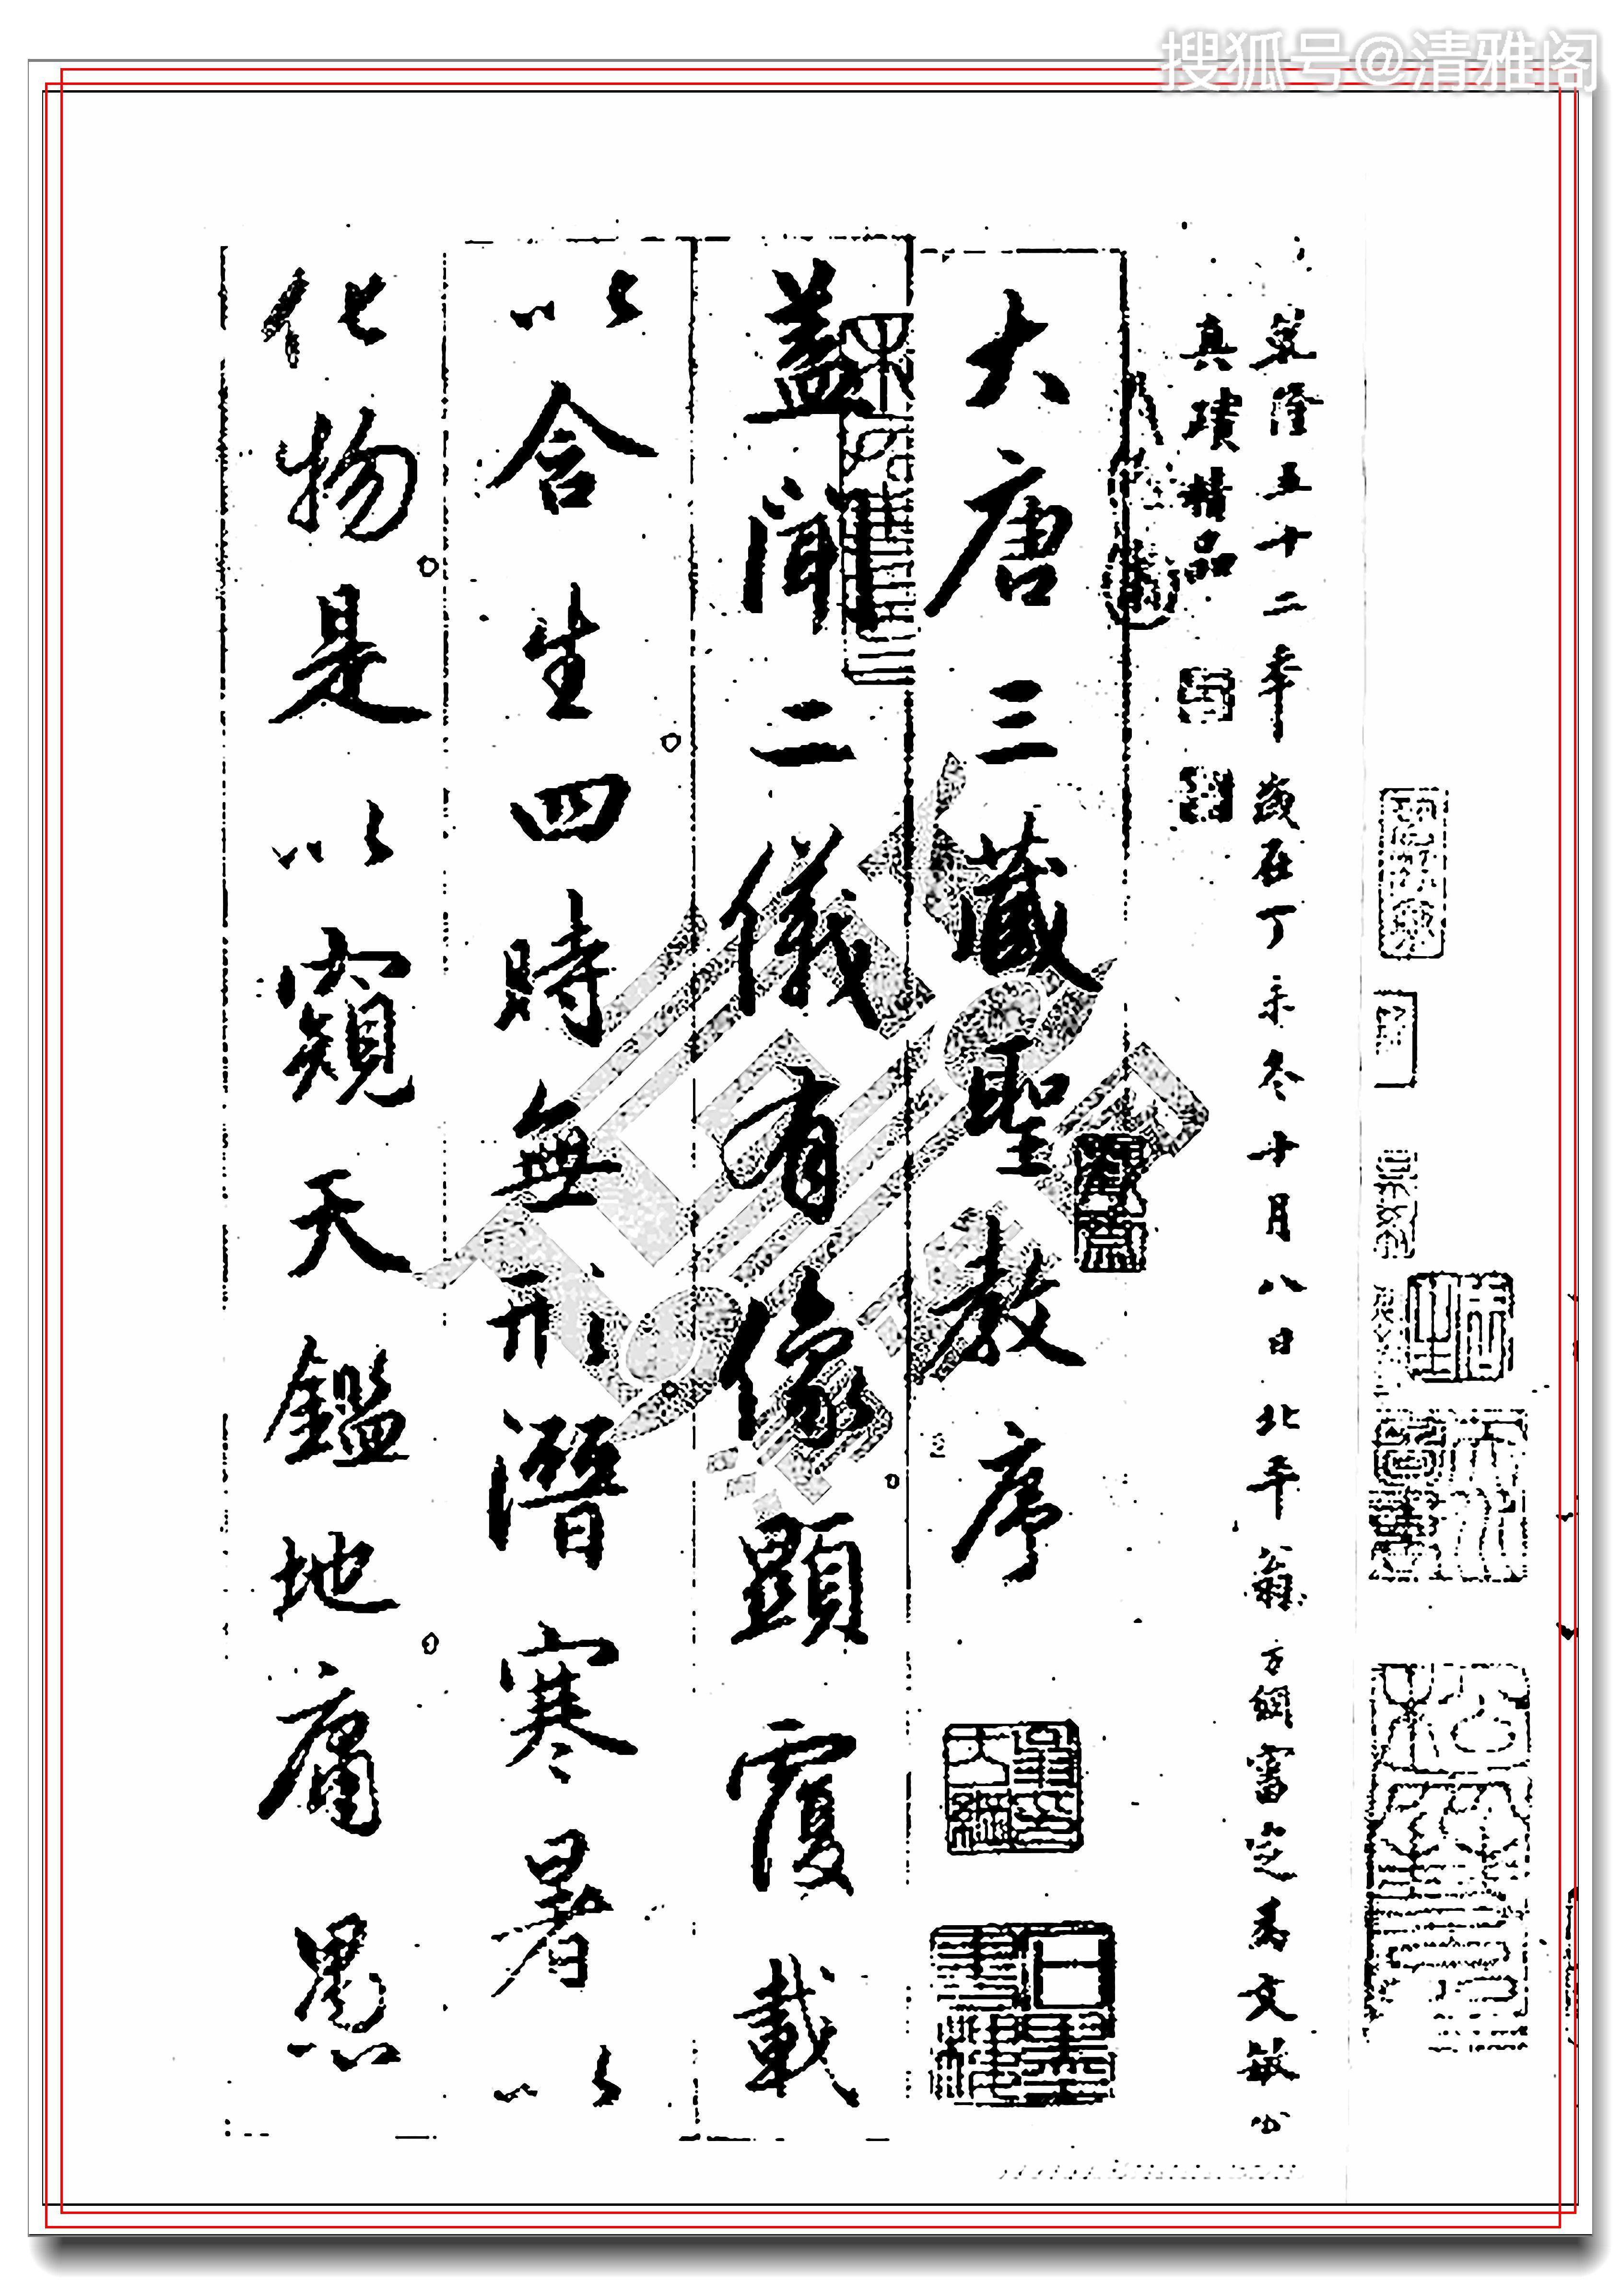 搜狐号@清雅阁
乾隆五十二年歲在丁未冬十月八日北平翁方綱審定為文敏公
真蹟精品
大唐三藏聖教序
蓋聞二儀有像顯覆載
以含生四時無形潛寒暑以
化物是以窺天鑑地庸愚